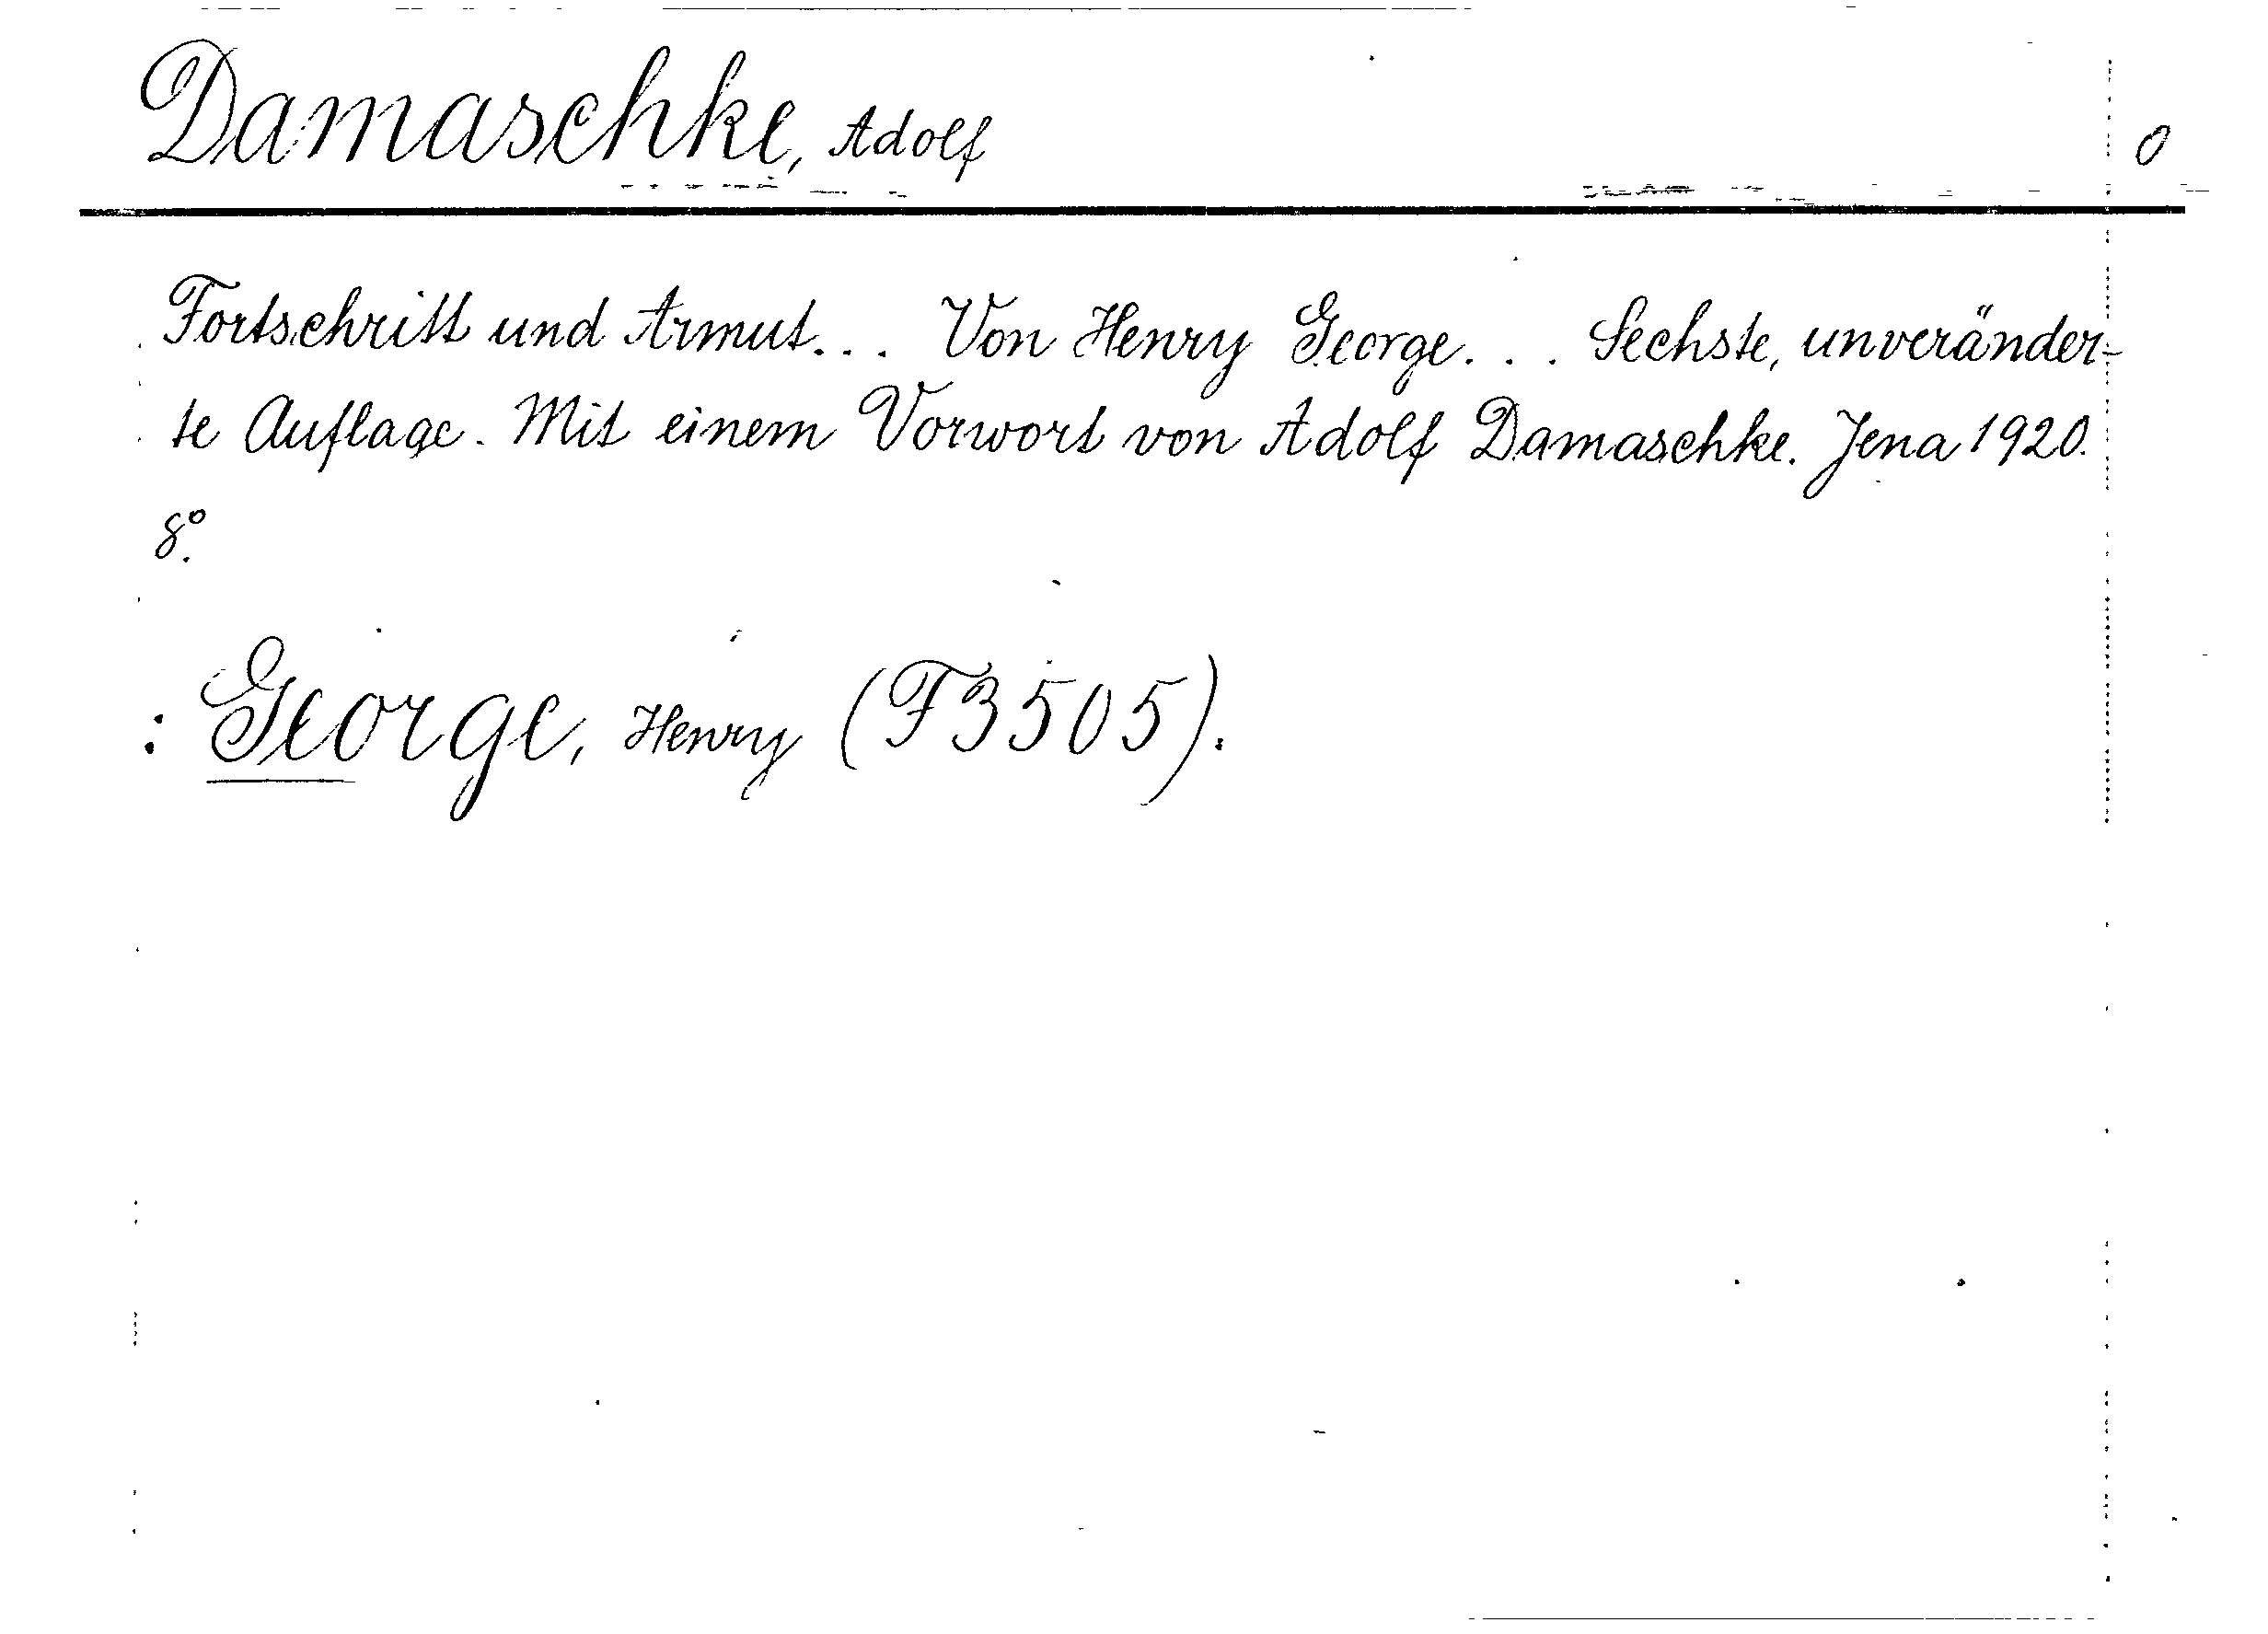 Damaschke, Adolf 0
Fortschritt und Armut... Von Henry George... Sechste, unveränder-
te Auflage. Mit einem Vorwort von Adolf Damaschke. Jena 1920.
8°.
: George, Henry (F3505).